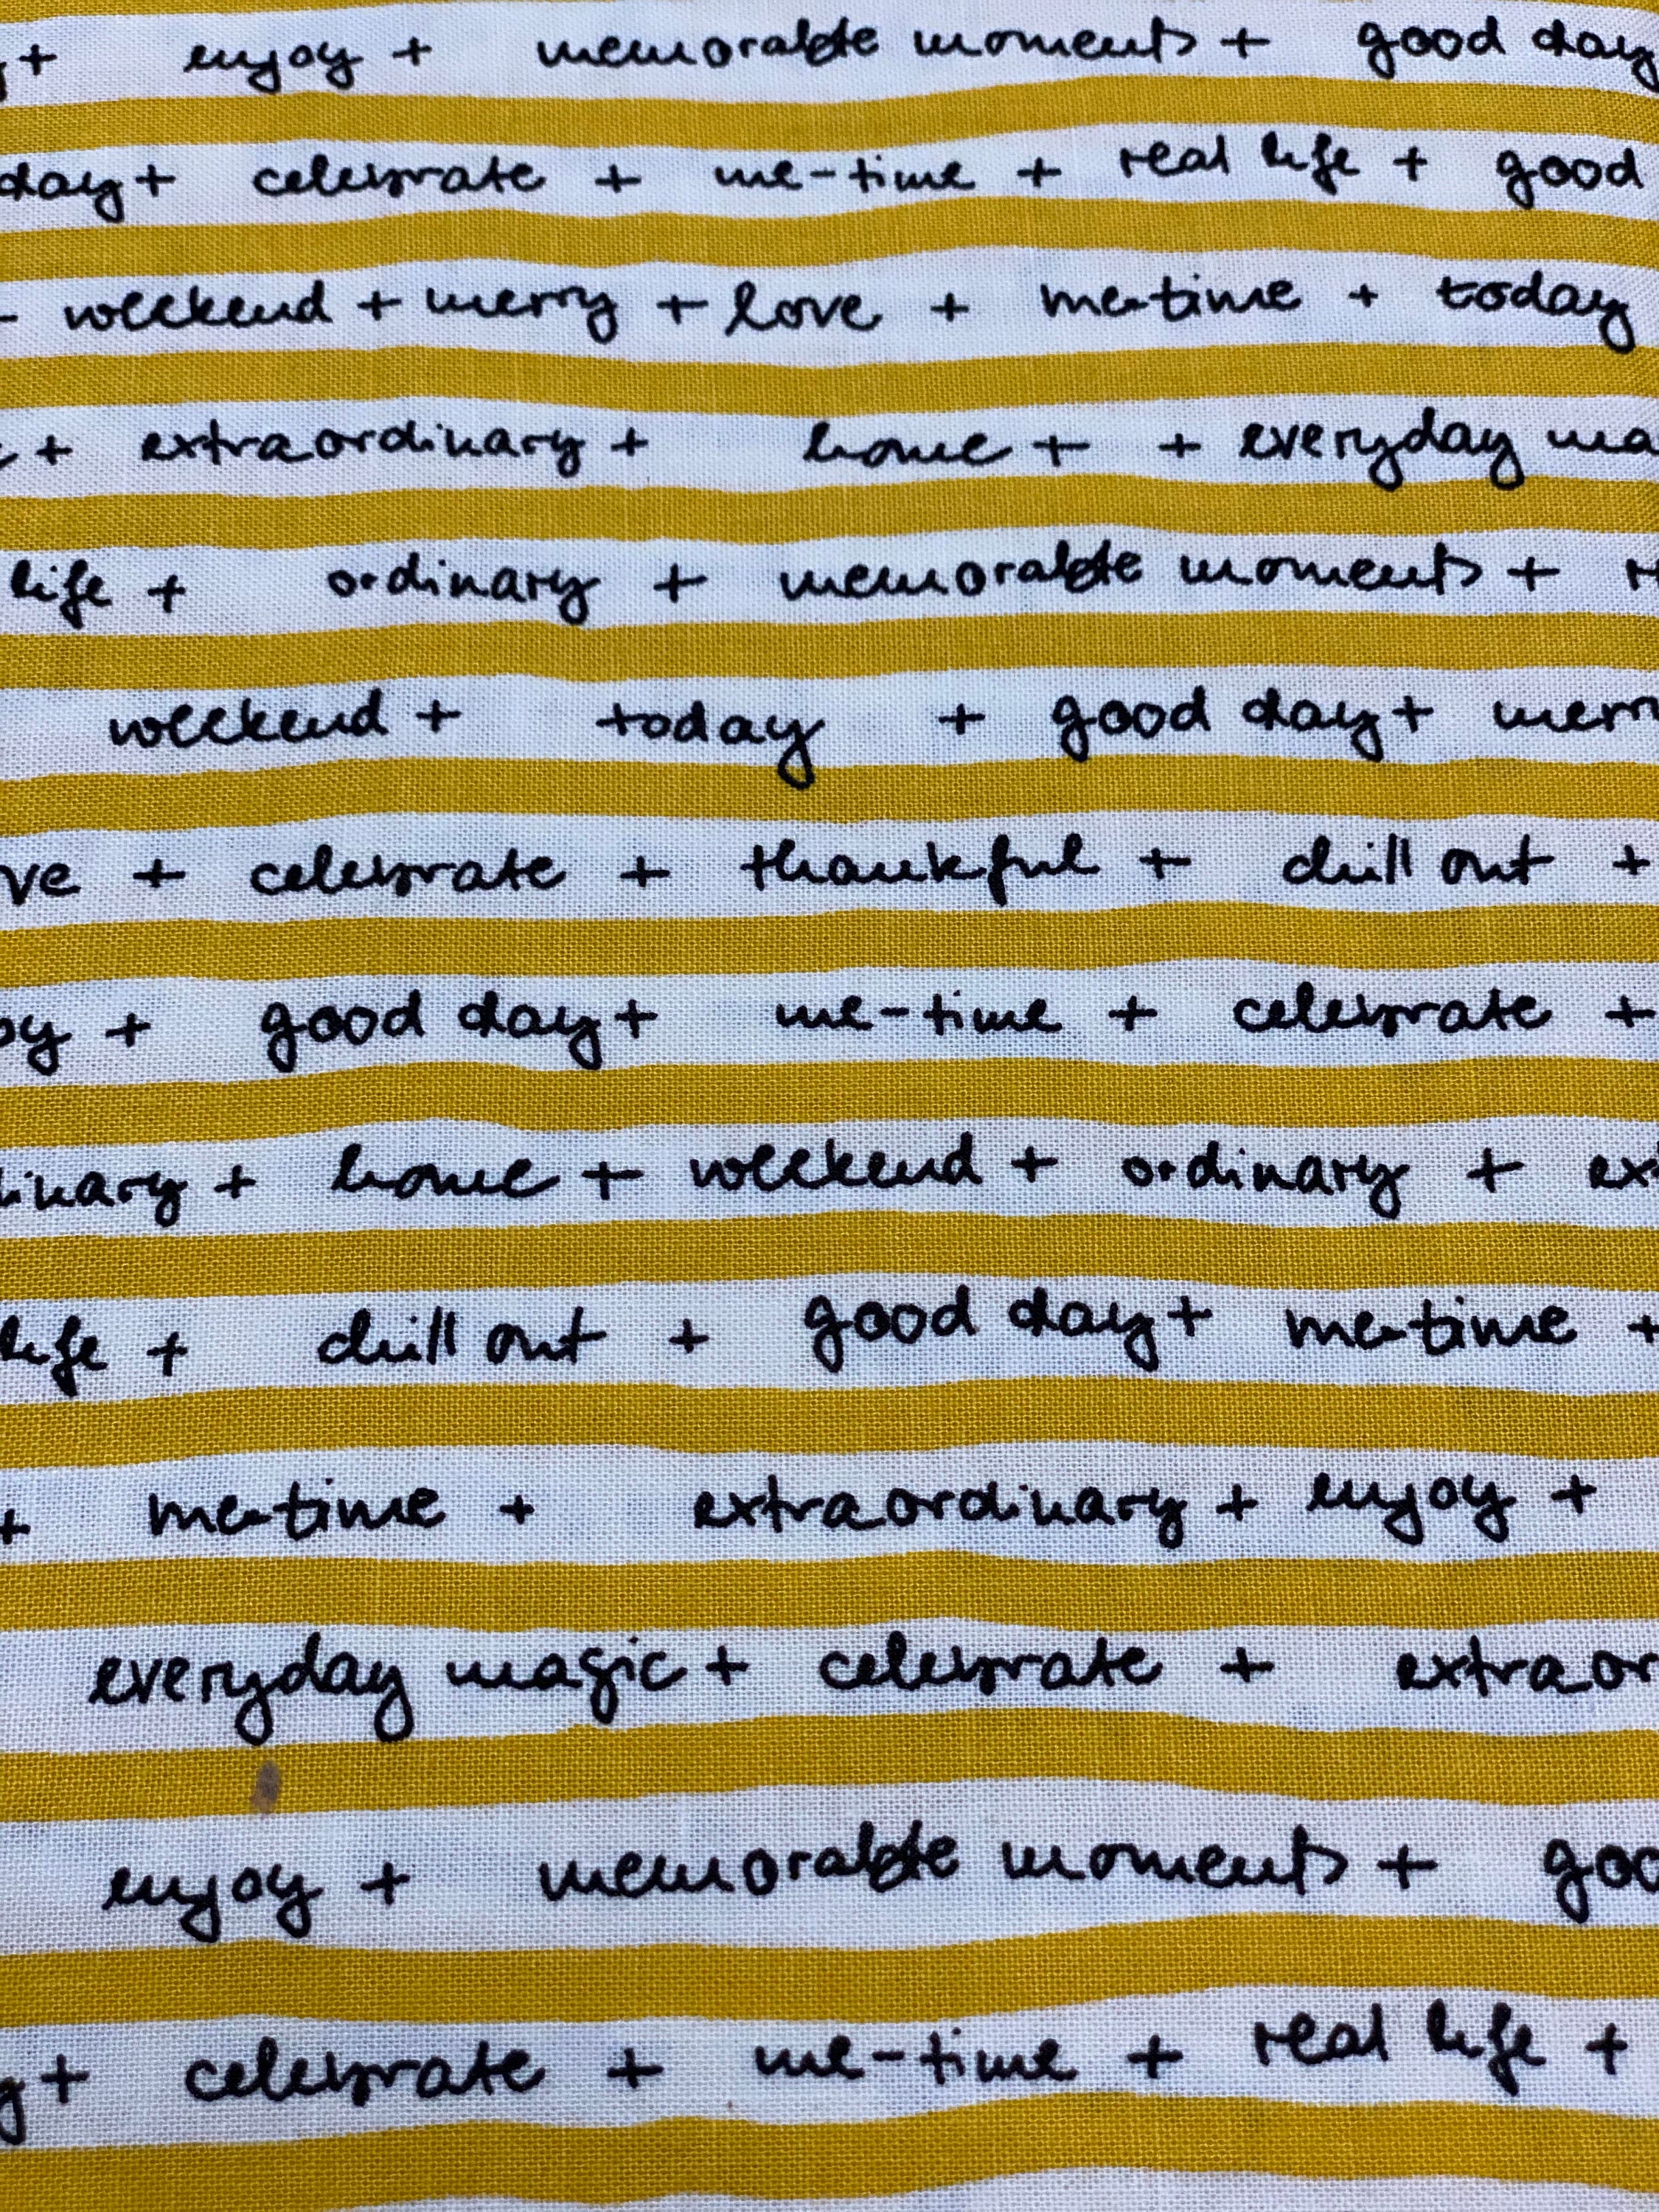 + enjoy + memorable moments + good day
day + celebrate + me-time + real life + good
weekend + merry + love + me-time + today
+ extraordinary + home + + everyday ma
life + ordinary + memorable moments + r
weekend + today + good day + merr
ve + celebrate + thankful + chill out +
oy + good day + me-time + celebrate +
inary + home + weekend + ordinary + ex
life + chill out + good day + me-time +
+ me-time + extraordinary + enjoy +
everyday magic + celebrate + extraor
enjoy + memorable moments + goo
y + celebrate + me-time + real life +